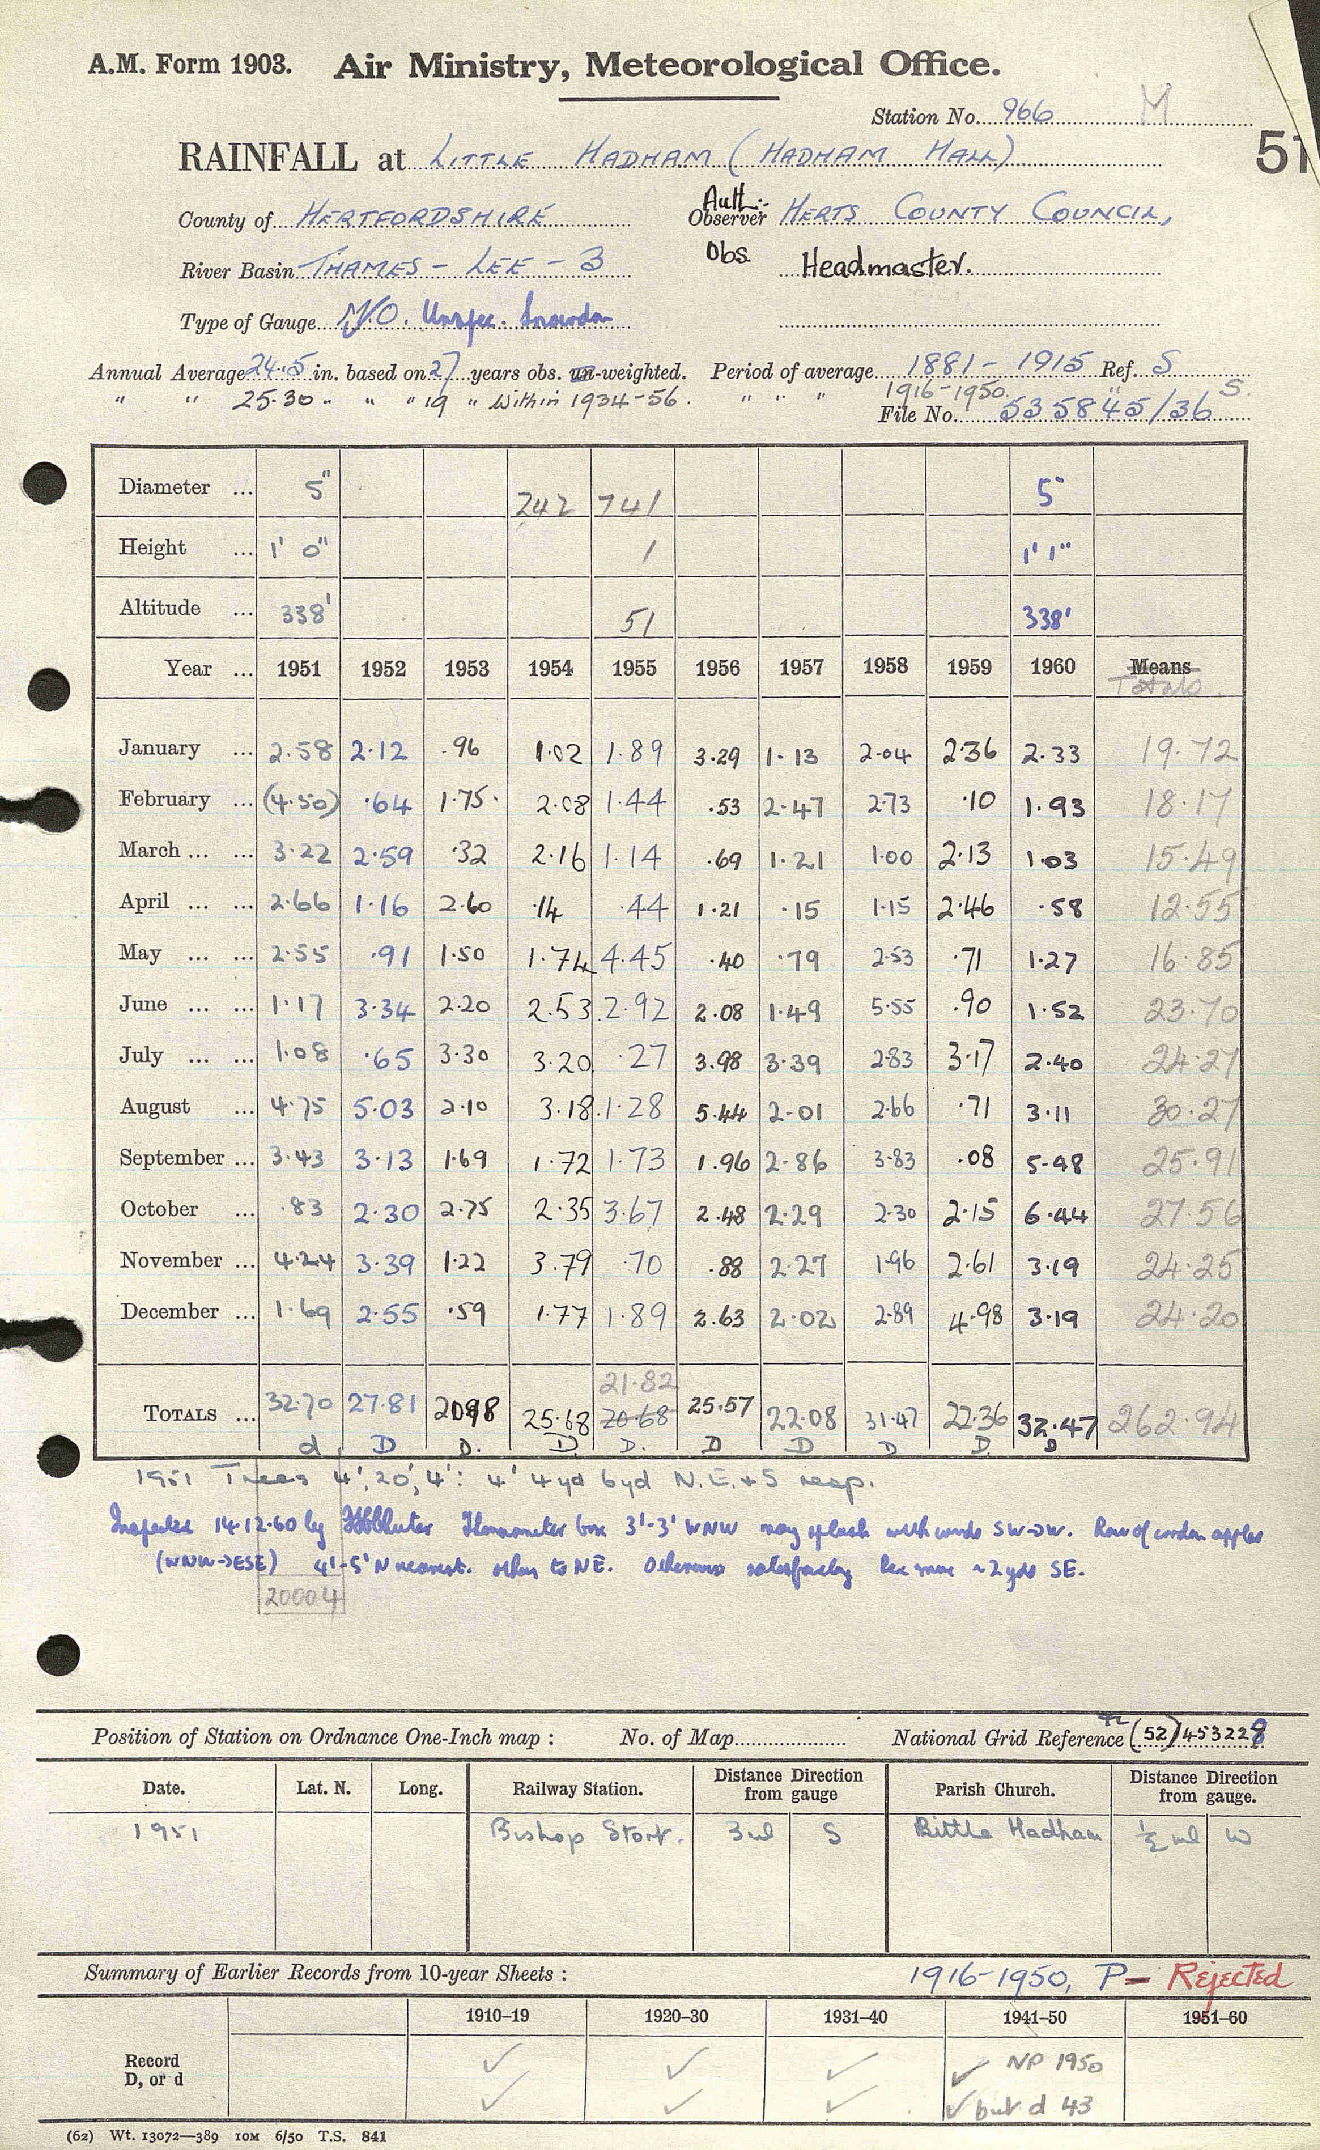 A.M. Form 1903. Air Ministry, Meteorological Office.
Station No. 966 M
51
RAINFALL at LITTLE HADHAM (HADHAM HALL)
County of HERTFORDSHIRE Auth:- Observer HERTS COUNTY COUNCIL,
River Basin THAMES - LEE - 3 Obs Headmaster.
Type of Gauge M/O. Unspec. Snowdon
Annual Average 24.5 in. based on 27 years obs. un-weighted. Period of average 1881 - 1915 Ref. S
" " 25.30 " " " 19 " Within 1934-56. " " " 1916-1950. " S.
File No. 535845/36
Diameter ... 5" 242 741 5"
Height ... 1' 0" 1 1' 1"
Altitude ... 338' 51 338'
Year ... 1951 1952 1953 1954 1955 1956 1957 1958 1959 1960 Means
Totals
January ... 2.58 2.12 .96 1.02 1.89 3.29 1.13 2.04 2.36 2.33 19.72
February ... (4.50) .64 1.75 2.08 1.44 .53 2.47 2.73 .10 1.93 18.17
March ... ... 3.22 2.59 .32 2.16 1.14 .69 1.21 1.00 2.13 1.03 15.49
April ... ... 2.66 1.16 2.60 .14 .44 1.21 .15 1.15 2.46 .58 12.55
May ... ... 2.55 .91 1.50 1.74 4.45 .40 .79 2.53 .71 1.27 16.85
June ... ... 1.17 3.34 2.20 2.53 2.92 2.08 1.49 5.55 .90 1.52 23.70
July ... ... 1.08 .65 3.30 3.20 .27 3.98 3.39 2.83 3.17 2.40 24.27
August ... 4.75 5.03 2.10 3.18 1.28 5.44 2.01 2.66 .71 3.11 30.27
September ... 3.43 3.13 1.69 1.72 1.73 1.96 2.86 3.83 .08 5.48 25.91
October ... .83 2.30 2.75 2.35 3.67 2.48 2.29 2.30 2.15 6.44 27.56
November ... 4.24 3.39 1.22 3.79 .70 .88 2.27 1.96 2.61 3.19 24.25
December ... 1.69 2.55 .59 1.77 1.89 2.63 2.02 2.89 4.98 3.19 24.20
21.82
TOTALS ... 32.70 27.81 20.98 25.68 20.68 25.57 22.08 31.47 22.36 32.47 262.94
d D D. D D. D D D D. D
1951 Trees 4', 20', 4': 4' 4yd 6yd N.E. + S resp.
Inspected 14.12.60 by Thermometer box 3'-3' WNW may splash with winds SW->W. Row of cordon apples
(WNW->ESE) 4'-5' N nearest. others to NE. Otherwise satisfactory ~2 yds SE.
20004
Position of Station on Ordnance One-Inch map : No. of Map National Grid Reference 42 (52) 453228
Date. Lat. N. Long. Railway Station. Distance Direction from gauge Parish Church. Distance Direction from gauge.
1951 Bishop Stort. 3ml S Little Hadham ½ ml W
Summary of Earlier Records from 10-year Sheets : 1916-1950, P - Rejected
1910–19 1920–30 1931–40 1941–50 1951–60
Record ✓ ✓ ✓ ✓ NP 1950
D, or d ✓ ✓ ✓ ✓ but d 43
(62) Wt. 13072—389 10M 6/50 T.S. 841